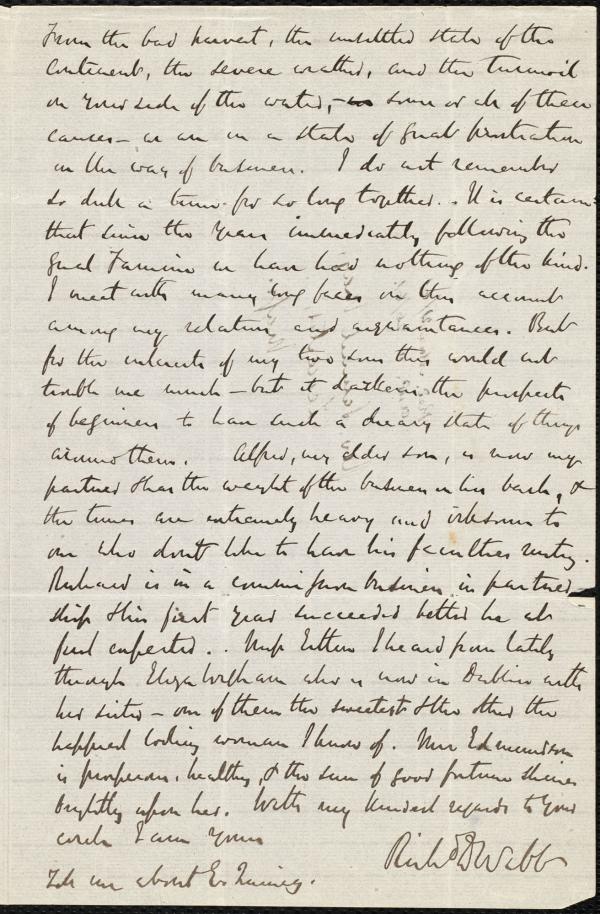 From the bad harvest, the unsettled state of the
Continent, the severe weather, and the turmoil
on your side of the water, — some or all of these
causes — we are in a state of great prostration
in the way of business. I do not remember
so dull a time for so long together. . It is certain
that since the years immediately following the
great Famine we have had nothing of the kind.
I meet with many long faces on this account
among my relations and acquaintances. But
for the interests of my two sons this would not
trouble me much — but it darkens the prospects
of beginners to have such a dreary state of things
around them. Alfred, my elder son, is now my
partner & has the weight of the business on his back, &
the times are extremely heavy and irksome to
one who don't like to have his faculties rusting.
Richard is in a commission business in partner
ship & his first year succeeded better he at
first expected. . Miss Estlin I heard from lately
through Eliza Wigham who is now in Dublin with
her sister — one of them the sweetest & the other the
happiest looking woman I know of. Mrs Edmundson
is prosperous, healthy, & the sun of good fortune shines
brightly upon her. With my kindest regards to your
circle I am Yours
Richd D Webb
Tell me about E. Quincy.